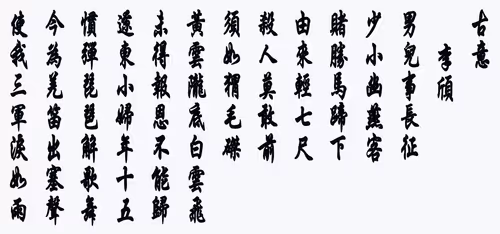 古意
李頎
男兒事長征
少小幽燕客
賭勝馬蹄下
由來輕七尺
殺人莫敢前
須如猬毛磔
黃雲隴底白雲飛
未得報恩不能歸
遼東小婦年十五
慣彈琵琶解歌舞
今為羌笛出塞聲
使我三軍淚如雨